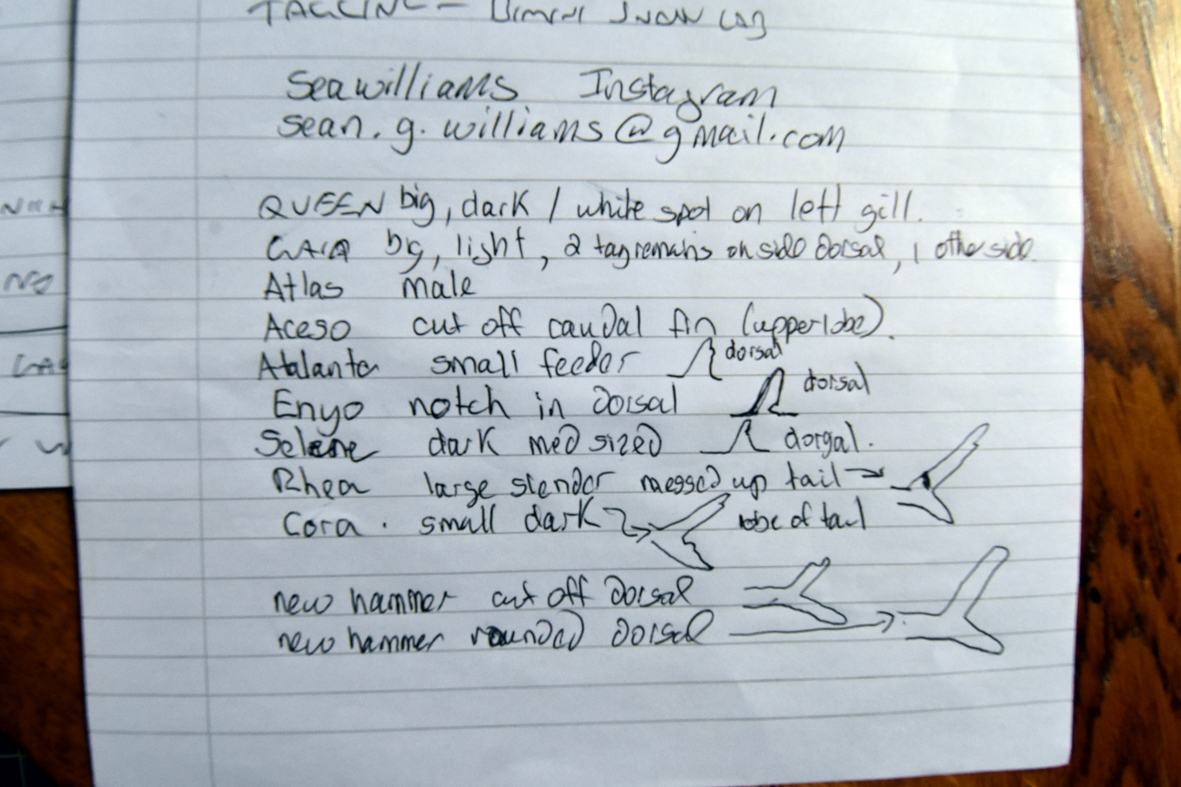 Seawilliams Instagram
sean.g.williams@gmail.com
QUEEN big, dark / white spot on left gill.
GAIA big, light, 2 tag remains on side dorsal, 1 other side.
Atlas male
Aceso cut off caudal fin (upper lobe).
Atalanta small feeder dorsal
Enyo notch in dorsal dorsal
Selene dark med sized dorsal.
Rhea large slender messed up tail
Cora. small dark lobe of tail
new hammer cut off dorsal
new hammer rounded dorsal